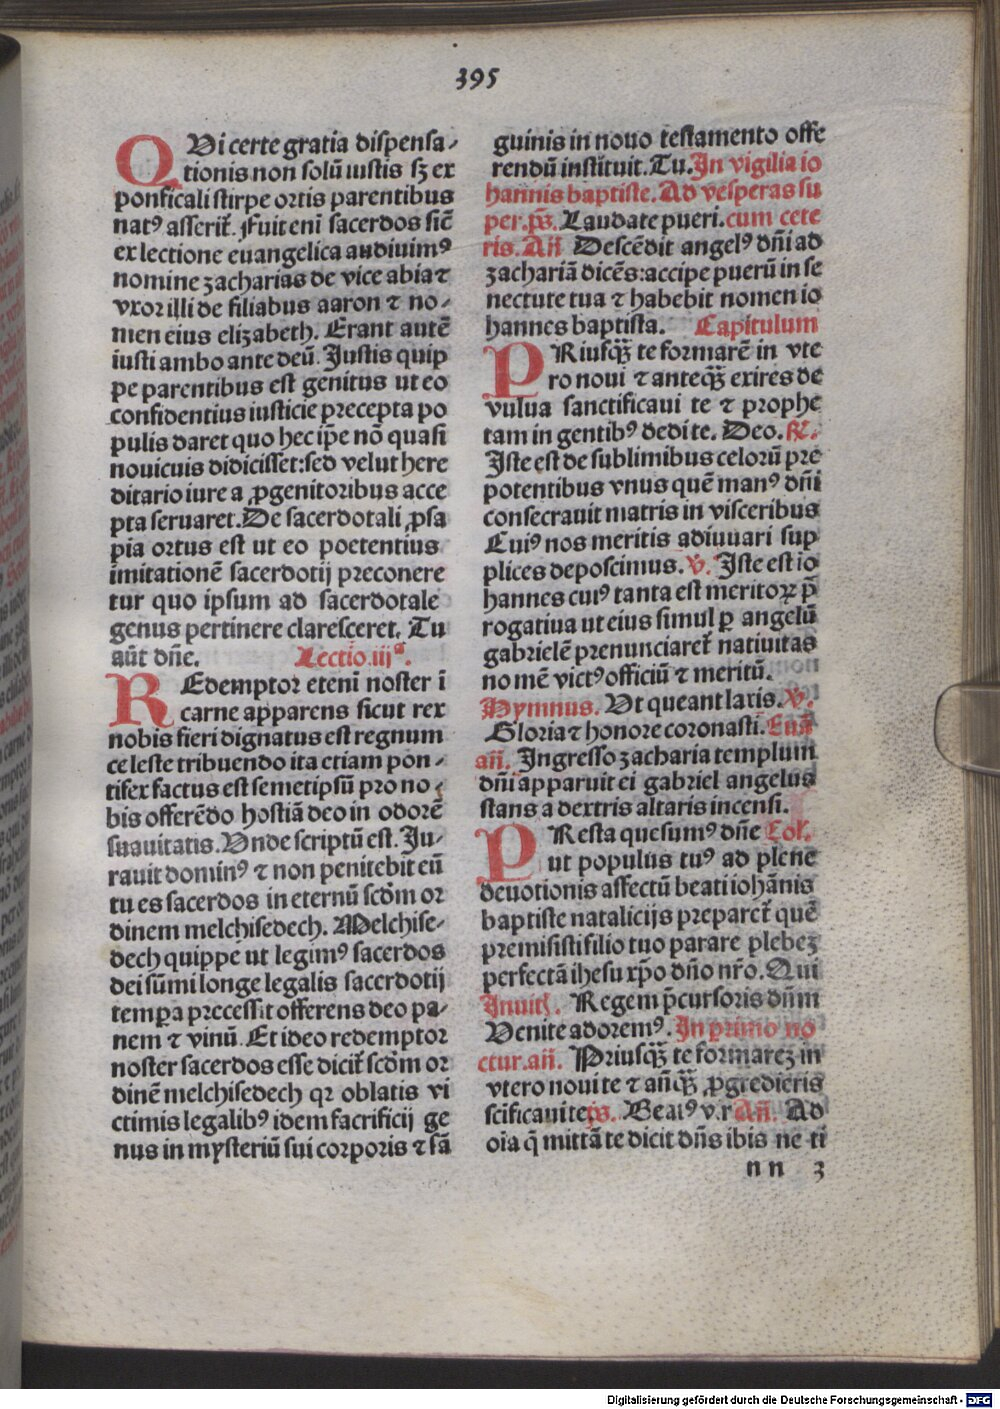 395
QVi certe gratia dispensa-
tionis non solū iustis sꝫ ex
ponficali stirpe ortis parentibus
natꝰ asserit᷑. Fuit eni sacerdos sic̄
ex lectione euangelica audiuimꝰ
nomine zacharias de vice abia ⁊
vxor illi de filiabus aaron ⁊ no-
men eius elizabeth. Erant autē
iusti ambo ante deū. Justis quip
pe parentibus est genitus ut eo
confidentius iusticie precepta po
pulis daret quo hec ip̄e nō quasi
nouicuis didicisset: sed velut here
ditario iure a ꝓgenitoribus acce
pta seruaret. De sacerdotali ꝓsa
pia ortus est ut eo poetentius
imitationē sacerdotij preconere
tur quo ipsum ad sacerdotale
genus pertinere claresceret. Tu
aūt dn̄e. Lectio .iijª.
REdemptor eteni noster ī
carne apparens sicut rex
nobis fieri dignatus est regnum
celeste tribuendo ita etiam pon-
tifex factus est semetipsū pro no-
bis offerēdo hostiā deo in odorē
suauitatis. Vnde scriptū est. Ju-
rauit dominꝰ ⁊ non penitebit eū
tu es sacerdos in eternū scd̄m or
dinem melchisedech. Melchise-
dech quippe ut legimꝰ sacerdos
dei sūmi longe legalis sacerdotij
tempora precessit offerens deo pa-
nem ⁊ vinū. Et ideo redemptor
noster sacerdos esse dicit᷑ scd̄m or
dinē melchisedech qr oblatis vi
ctimis legalibꝰ idem sacrificij ge
nus in mysteriū sui corporis ⁊ sā
guinis in nouo testamento offe
rendū instituit. Tu. In vigilia io
hannis baptiste. Ad vesperas su
per. ps̄. Laudate pueri. cum cete
ris. Añ Descēdit angelꝰ dn̄i ad
zachariā dicēs: accipe puerū in se
nectute tua ⁊ habebit nomen io
hannes baptista. Capitulum
PRiusqꝫ te formarē in vte
ro noui ⁊ anteqꝫ exires de
vulua sanctificaui te ⁊ prophe
tam in gentibꝰ dedi te. Deo. ℟.
Iste est de sublimibus celorū pre
potentibus vnus quē manꝰ dn̄i
consecrauit matris in visceribus
Cuiꝰ nos meritis adiuuari sup
plices deposcimus. v. Iste est io
hannes cuiꝰ tanta est meritoꝝ p̄
rogatiua ut eius simul ꝑ angelū
gabrielē prenunciaret᷑ natiuitas
nomē victꝰ officiū ⁊ meritū.
Hymnus. Ut queant laxis. v.
Gloria ⁊ honore coronasti. Euā
añ. Ingresso zacharia templum
dn̄i apparuit ei gabriel angelus
stans a dextris altaris incensi.
PResta quesumꝰ dn̄e Col'.
ut populus tuꝰ ad plene
deuotionis affectū beati iohānis
baptiste natalicijs preparet᷑ quē
premisisti filio tuo parare plebeꝫ
perfectā ihesu xp̄o dn̄o nr̄o. Qui
Inuit. Regem p̄cursoris dn̄m
Venite adoremꝰ. In primo no
ctur. añ. Priusqꝫ te formareꝫ in
vtero noui te ⁊ añqꝫ ꝓgredieris
scificaui te ps̄. Beatꝰ v. r Añ. Ad
oīa q̄ mittā te dicit dn̄s ibis ne ti
nn 3
Digitalisierung gefördert durch die Deutsche Forschungsgemeinschaft - DFG